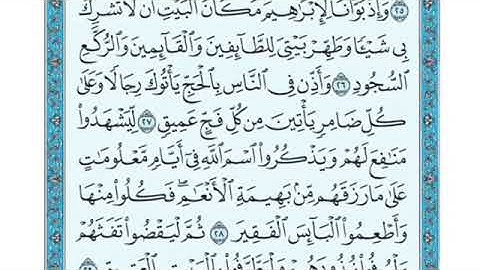 ﴿٢٥﴾ وَإِذْ بَوَّأْنَا لِإِبْرَٰهِيمَ مَكَانَ ٱلْبَيْتِ أَن لَّا تُشْرِكْ
بِى شَيْـًٔا وَطَهِّرْ بَيْتِىَ لِلطَّآئِفِينَ وَٱلْقَآئِمِينَ وَٱلرُّكَّعِ
ٱلسُّجُودِ ﴿٢٦﴾ وَأَذِّن فِى ٱلنَّاسِ بِٱلْحَجِّ يَأْتُوكَ رِجَالًا وَعَلَىٰ
كُلِّ ضَامِرٍ يَأْتِينَ مِن كُلِّ فَجٍّ عَمِيقٍ ﴿٢٧﴾ لِّيَشْهَدُوا۟
مَنَٰفِعَ لَهُمْ وَيَذْكُرُوا۟ ٱسْمَ ٱللَّهِ فِىٓ أَيَّامٍ مَّعْلُومَٰتٍ
عَلَىٰ مَا رَزَقَهُم مِّنۢ بَهِيمَةِ ٱلْأَنْعَٰمِ ۖ فَكُلُوا۟ مِنْهَا
وَأَطْعِمُوا۟ ٱلْبَآئِسَ ٱلْفَقِيرَ ﴿٢٨﴾ ثُمَّ لْيَقْضُوا۟ تَفَثَهُمْ
وَلْيُوفُوا۟ نُذُورَهُمْ وَلْيَطَّوَّفُوا۟ بِٱلْبَيْتِ ٱلْعَتِيقِ